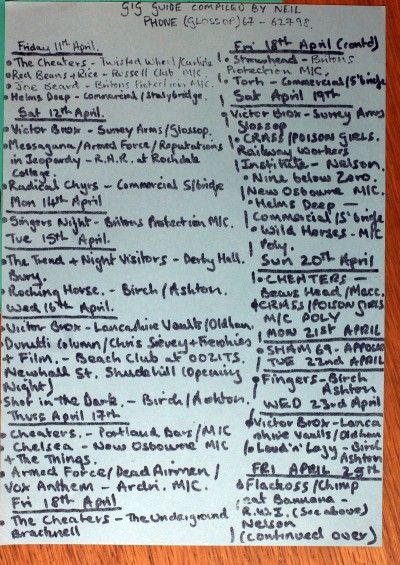 GIG GUIDE COMPILED BY NEIL
PHONE (GLOSSOP) 67-62798.
Friday 11th April.
• The Cheaters - Twisted Wheel/Carlisle
• Red Beans & Rice - Russell Club M/C.
• Joe Beard - Britons Protection M/C.
• Helms Deep - Commercial/Stalybridge.
Sat 12th April.
• Victor Brox - Surrey Arms/Glossop.
• Messagana/Armed Force/Reputations
in Jeopardy - R.A.R. at Rochdale
College.
• Radical Chyrs - Commercial S/bridge
Mon 14th April
• Singers Night - Britons Protection M/C.
Tue 15th April.
• The Trend + Night Visitors - Derby Hall.
Bury.
• Rocking Horse. - Birch/Ashton.
Wed 16th April.
• Victor Brox - Lancashire Vaults/Oldham.
• Durutti Column/Chris Sievey + Frenchies
+ Film. - Beach Club at OOZITS.
Newhall St. Shudehill (Opening
Night)
• Shot in the Dark. - Birch/Ashton.
Thurs April 17th
• Cheaters. - Portland Bars/M/C
• Chelsea - New Osbourne M/C
+ The Things.
• Armed Force/Dead Airmen/
Vox Anthem - Ardri. M/C.
Fri 18th April
• The Cheaters - The Underground
Bracknell
Fri 18th April (contd)
• Strawhead - Britons
Protection M/C.
• Torn - Commercial/S'bridge
Sat April 19th
• Victor Brox - Surrey Arms
Glossop
• CRASS/POISON GIRLS.
Railway Workers
Institute - Nelson.
• Nine below Zero.
New Osbourne M/C.
• Helms Deep -
Commercial/S'bridge
• Wild Horses - M/C
Poly.
Sun 20th April
• CHEATERS -
Bears Head/Macc.
• CRASS/POISON GIRLS
M/C POLY
MON 21ST APRIL
• SHAM 69 - APPOLLO
TUE 22ND APRIL
• Fingers - Birch
Ashton
WED 23rd April
• Victor Brox - Lanca
shire Vaults/Oldham
• Loud 'n' Lazy - Birch
Ashton
FRI APRIL 25th
• Flackoss/Chimp
eat Banana -
R.W.I. (See above)
Nelson
(continued over)